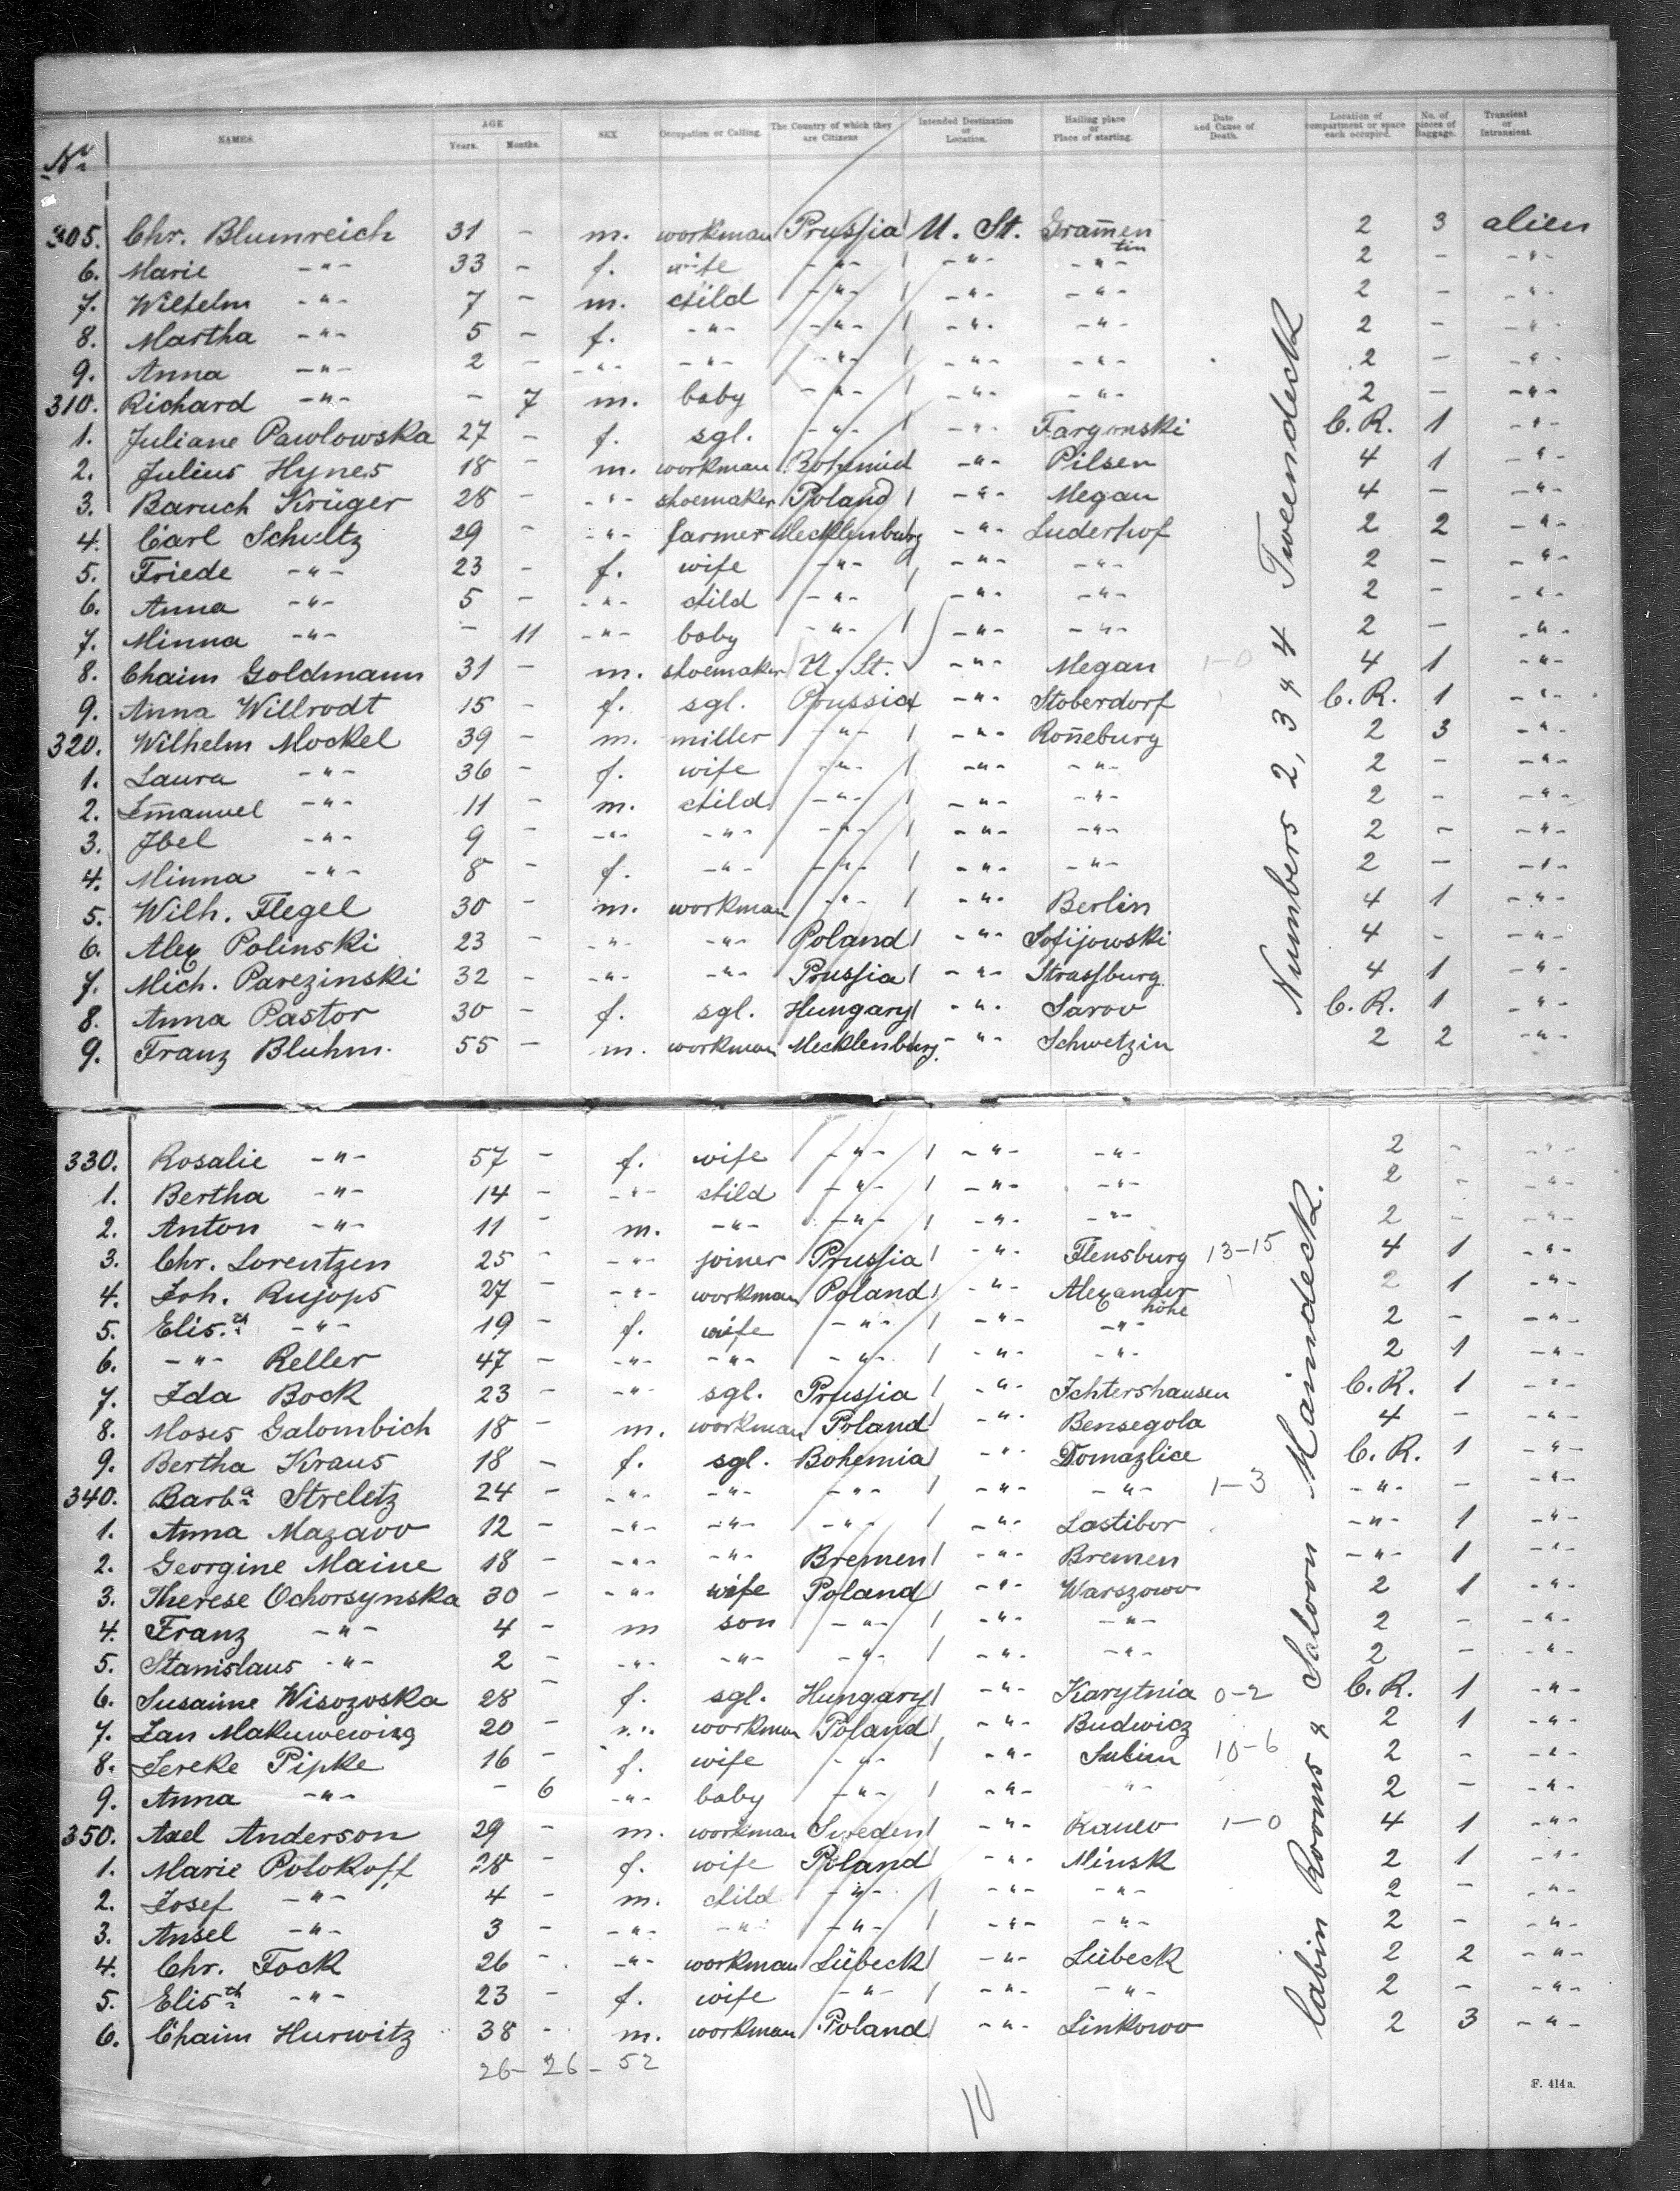 No.
NAMES. AGE Years. Months. SEX Occupation or Calling. The Country of which they are Citizens Intended Destination or Location. Hailing place or Place of starting. Date and Cause of Death. Location of compartment or space each occupied. No. of pieces of Baggage. Transient or Intransient.
305. Chr. Blumreich 31 - m. workman Prussia U. St. Gram̄entin 2 3 alien
6. Marie -"- 33 - f. wife -"- -"- -"- 2 - -"-
7. Wilhelm -"- 7 - m. child -"- -"- -"- 2 - -"-
8. Martha -"- 5 - f. -"- -"- -"- -"- 2 - -"-
9. Anna -"- 2 - -"- -"- -"- -"- -"- 2 - -"-
310. Richard -"- - 7 m. baby -"- -"- -"- 2 - -"-
1. Juliane Pawlowska 27 - f. sgl. -"- -"- C. R. 1 -"-
2. Julius Hynes 18 - m. workman Bohemia -"- Pilsen 4 1 -"-
3. Baruch Krüger 28 - -"- shoemaker Poland -"- Megan 4 - -"-
4. Carl Schultz 29 - -"- farmer Mecklenburg -"- Luderhof 2 2 -"-
5. Friede -"- 23 - f. wife -"- -"- -"- 2 - -"-
6. Anna -"- 5 - -"- child -"- -"- -"- 2 - -"-
7. Minna -"- - 11 -"- baby -"- -"- -"- 2 - -"-
8. Chaim Goldmann 31 - m. shoemaker U. St. -"- Megan 1-0 4 1 -"-
9. Anna Willrodt 15 - f. sgl. Prussia -"- Stoberdorf C. R. 1 -"-
320. Wilhelm Mockel 39 - m. miller -"- -"- Ron̄eburg 2 3 -"-
1. Laura -"- 36 - f. wife -"- -"- -"- 2 - -"-
2. Em̄anuel -"- 11 - m. child -"- -"- -"- 2 - -"-
3. Jbel -"- 9 - -"- -"- -"- -"- -"- 2 - -"-
4. Minna -"- 8 - f. -"- -"- -"- -"- 2 - -"-
5. Wilh. Flegel 30 - m. workman -"- -"- Berlin 4 1 -"-
6. Alex Polinski 23 - -"- -"- Poland -"- Sofijowski 4 - -"-
7. Mich. Parezinski 32 - -"- -"- Prussia -"- Strassburg 4 1 -"-
8. Anna Pastor 30 - f. sgl. Hungary -"- Sarov C. R. 1 -"-
9. Franz Bluhm. 55 - m. workman Mecklenburg. -"- Schwetzin 2 2 -"-
Numbers 2, 3 & 4 Tweendeck
330. Rosalie -"- 57 - f. wife -"- -"- -"- 2 - -"-
1. Bertha -"- 14 - -"- child -"- -"- -"- 2 - -"-
2. Anton -"- 11 - m. -"- -"- -"- -"- 2 - -"-
3. Chr. Lorentzen 25 - -"- joiner Prussia -"- Flensburg 13-15 4 1 -"-
4. Joh. Rujops 27 - -"- workman Poland -"- Alexanderhöhe 2 1 -"-
5. Elis.th -"- 19 - f. wife -"- -"- -"- 2 - -"-
6. -"- Reller 47 - -"- -"- -"- -"- -"- 2 1 -"-
7. Ida Bock 23 - -"- sgl. Prussia -"- Ichtershausen C. R. 1 -"-
8. Moses Galombich 18 - m. workman Poland -"- Bensegola 4 - -"-
9. Bertha Kraus 18 - f. sgl. Bohemia -"- Domazlice C. R. 1 -"-
340. Barb.a Strelitz 24 - -"- -"- -"- -"- -"- 1-3 -"- - -"-
1. Anna Mazavv 12 - -"- -"- -"- -"- Lastibor -"- 1 -"-
2. Georgine Maine 18 - -"- -"- Bremen -"- Bremen -"- 1 -"-
3. Therese Ochorsynska 30 - -"- wife Poland -"- Warszowo 2 1 -"-
4. Franz -"- 4 - m son -"- -"- -"- 2 - -"-
5. Stanislaus -"- 2 - -"- -"- -"- -"- -"- 2 - -"-
6. Susanne Wisozoska 28 - f. sgl. Hungary -"- Karytnia 0-2 C. R. 1 -"-
7. Jan 20 - workman Poland -"- Budwicz 2 1 -"-
8. Lereke Pipke 16 - f. wife -"- -"- 10-6 2 - -"-
9. Anna -"- - 6 -"- baby -"- -"- -"- 2 - -"-
350. Axel Anderson 29 - m. workman Sweden -"- 1-0 4 1 -"-
1. Marie Polokoff 28 - f. wife Poland -"- Minsk 2 1 -"-
2. Josef -"- 4 - m. child -"- -"- -"- 2 - -"-
3. Ansel -"- 3 - -"- -"- -"- -"- -"- 2 - -"-
4. Chr. Fock 26 - -"- workman Lübeck -"- Lübeck 2 2 -"-
5. Elis.th -"- 23 - f. wife -"- -"- -"- 2 - -"-
6. Chaim Hurwitz 38 - m. workman Poland -"- Linkowo 2 3 -"-
Cabin Rooms & Saloon Maindeck.
26-26-52
10
F. 414a.